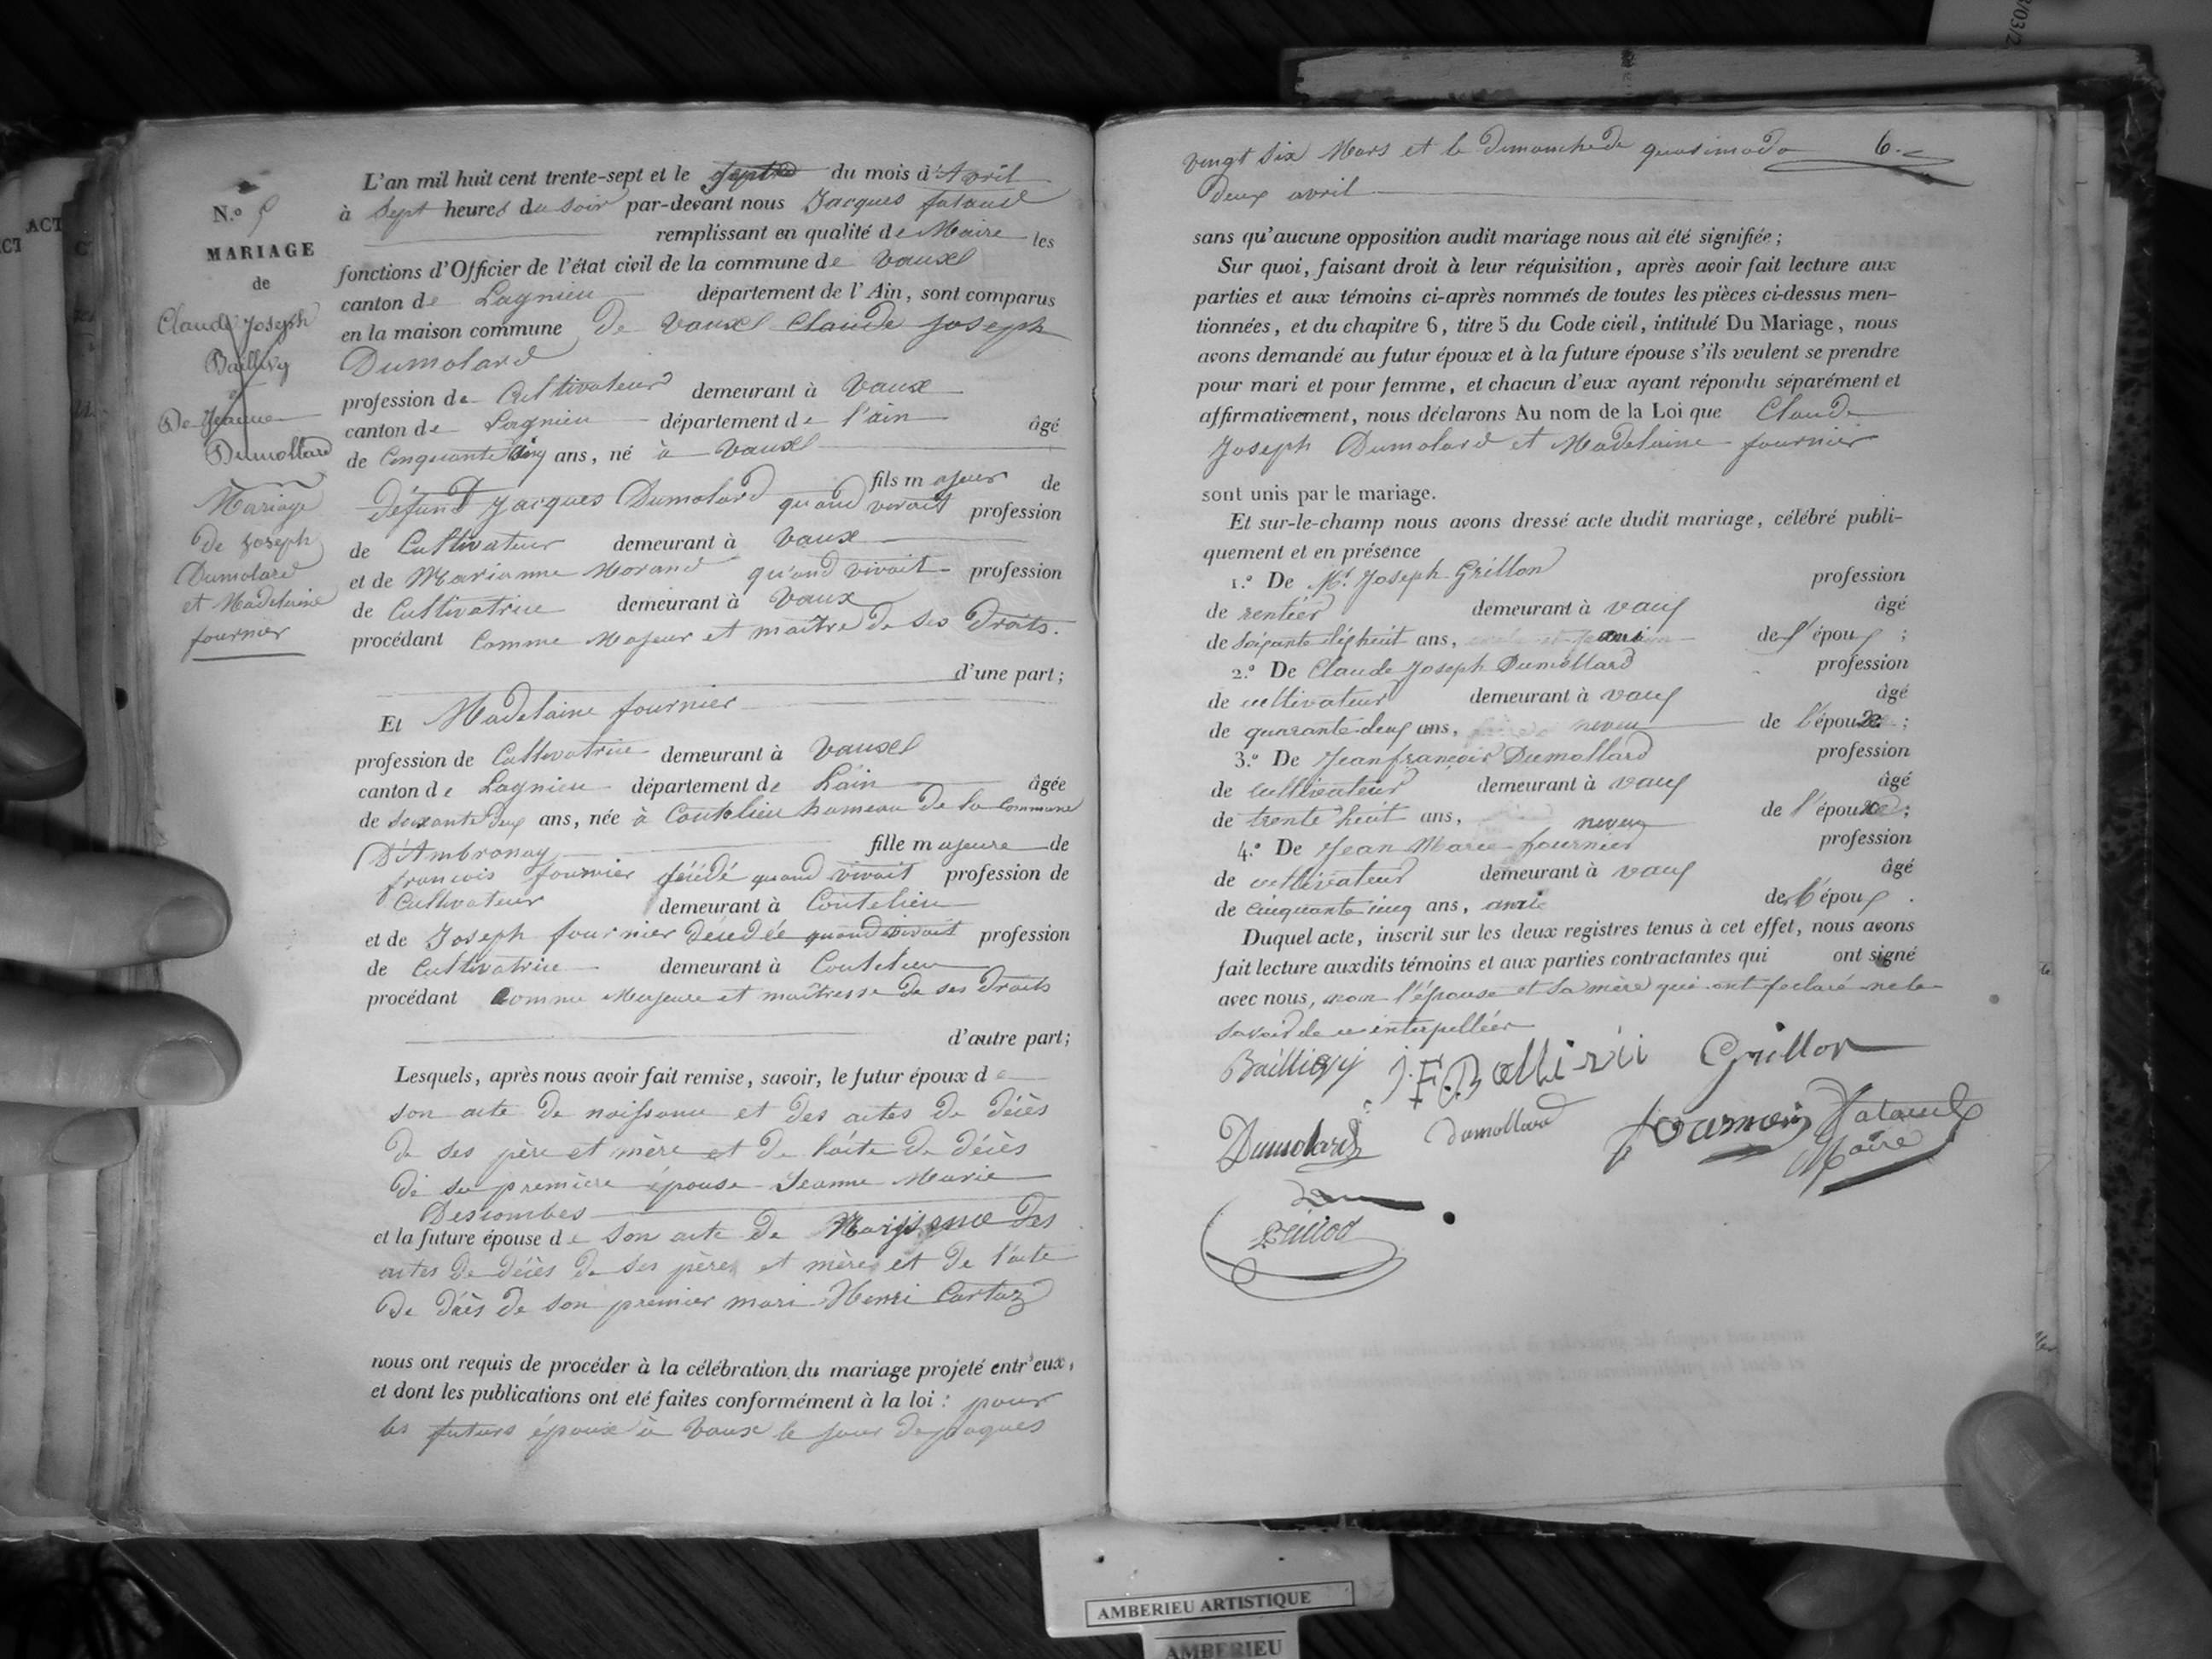 L'an mil huit cent trente-sept et le sept du mois d'Avril
à Sept heures du soir par-devant nous Jacques
remplissant en qualité de Maire les
fonctions d'Officier de l'état civil de la commune de Vaux
canton de Lagnieu département de l'Ain, sont comparus
en la maison commune de Vaux Claude Joseph
Dumolard
profession de Cultivateur demeurant à Vaux
canton de Lagnieu département de l'ain âgé
de Cinquante cinq ans, né à Vaux
fils majeur de
défunt Jacques Dumolard quand vivait profession
de Cultivateur demeurant à Vaux
et de Marianne Morand qu'and vivait profession
de Cultivatrice demeurant à Vaux
procédant Comme Majeur et maître de ses Droits.
d'une part;
Et Madelaine fournier
profession de Cultivatrice demeurant à Vaux
canton de Lagnieu département de Lain âgée
de soixante deux ans, née à Coutelieu hameau de la Commune
D'Ambronay fille majeure de
francois fournier décédé quand vivait profession de
Cultivateur demeurant à Coutelieu
et de Joseph fournier décédée quand vivait profession
de Cultivatrice demeurant à Coutelieu
procédant Comme Majeure et maîtresse de ses Droits
d'autre part;
Lesquels, après nous avoir fait remise, savoir, le futur époux de
son acte de naissance et des actes de décès
de ses père et mère et de l'acte de décès
de sa première épouse Jeanne Marie
Descombes
et la future épouse de son acte de Naissance des
actes de décès de ses pères et mères et de l'acte
de décès de son premier mari Henri Cartaz
nous ont requis de procéder à la célébration du mariage projeté entr'eux,
et dont les publications ont été faites conformément à la loi : pour
les futurs époux à Vaux le jour de paques
N.º 5
MARIAGE
de
Claude Joseph
Baillivy
et
De Jeanne
Dumollard
Mariage
de Joseph
Dumolard
et Madelaine
fournier
6.
vingt six Mars et le dimanche de quasimodo
deux avril
sans qu'aucune opposition audit mariage nous ait été signifiée;
Sur quoi, faisant droit à leur réquisition, après avoir fait lecture aux
parties et aux témoins ci-après nommés de toutes les pièces ci-dessus men-
tionnées, et du chapitre 6, titre 5 du Code civil, intitulé Du Mariage, nous
avons demandé au futur époux et à la future épouse s'ils veulent se prendre
pour mari et pour femme, et chacun d'eux ayant répondu séparément et
affirmativement, nous déclarons Au nom de la Loi que Claude
Joseph Dumolard et Madelaine fournier
sont unis par le mariage.
Et sur-le-champ nous avons dressé acte dudit mariage, célébré publi-
quement et en présence
1.º De Mr. Joseph Grillon profession
de rentier demeurant à vaux âgé
de soixante dix huit ans, ami de l'époux ;
2.º De Claude Joseph Dumollard profession
de cultivateur demeurant à vaux âgé
de quarante deux ans, neveu de l'époux ;
3.º De Jean françois Dumollard profession
de cultivateur demeurant à vaux âgé
de trente huit ans, neveu de l'époux ;
4.º De Jean Marie fournier profession
de cultivateur demeurant à vaux âgé
de cinquante cinq ans, ami de l'époux .
Duquel acte, inscrit sur les deux registres tenus à cet effet, nous avons
fait lecture auxdits témoins et aux parties contractantes qui ont signé
avec nous, non l'épouse et sa mère qui ont declaré ne le
savoir de ce interpellées
Baillivy Grillon
Dumolard dumollard fournier
Maire
AMBERIEU ARTISTIQUE
AMBERIEU